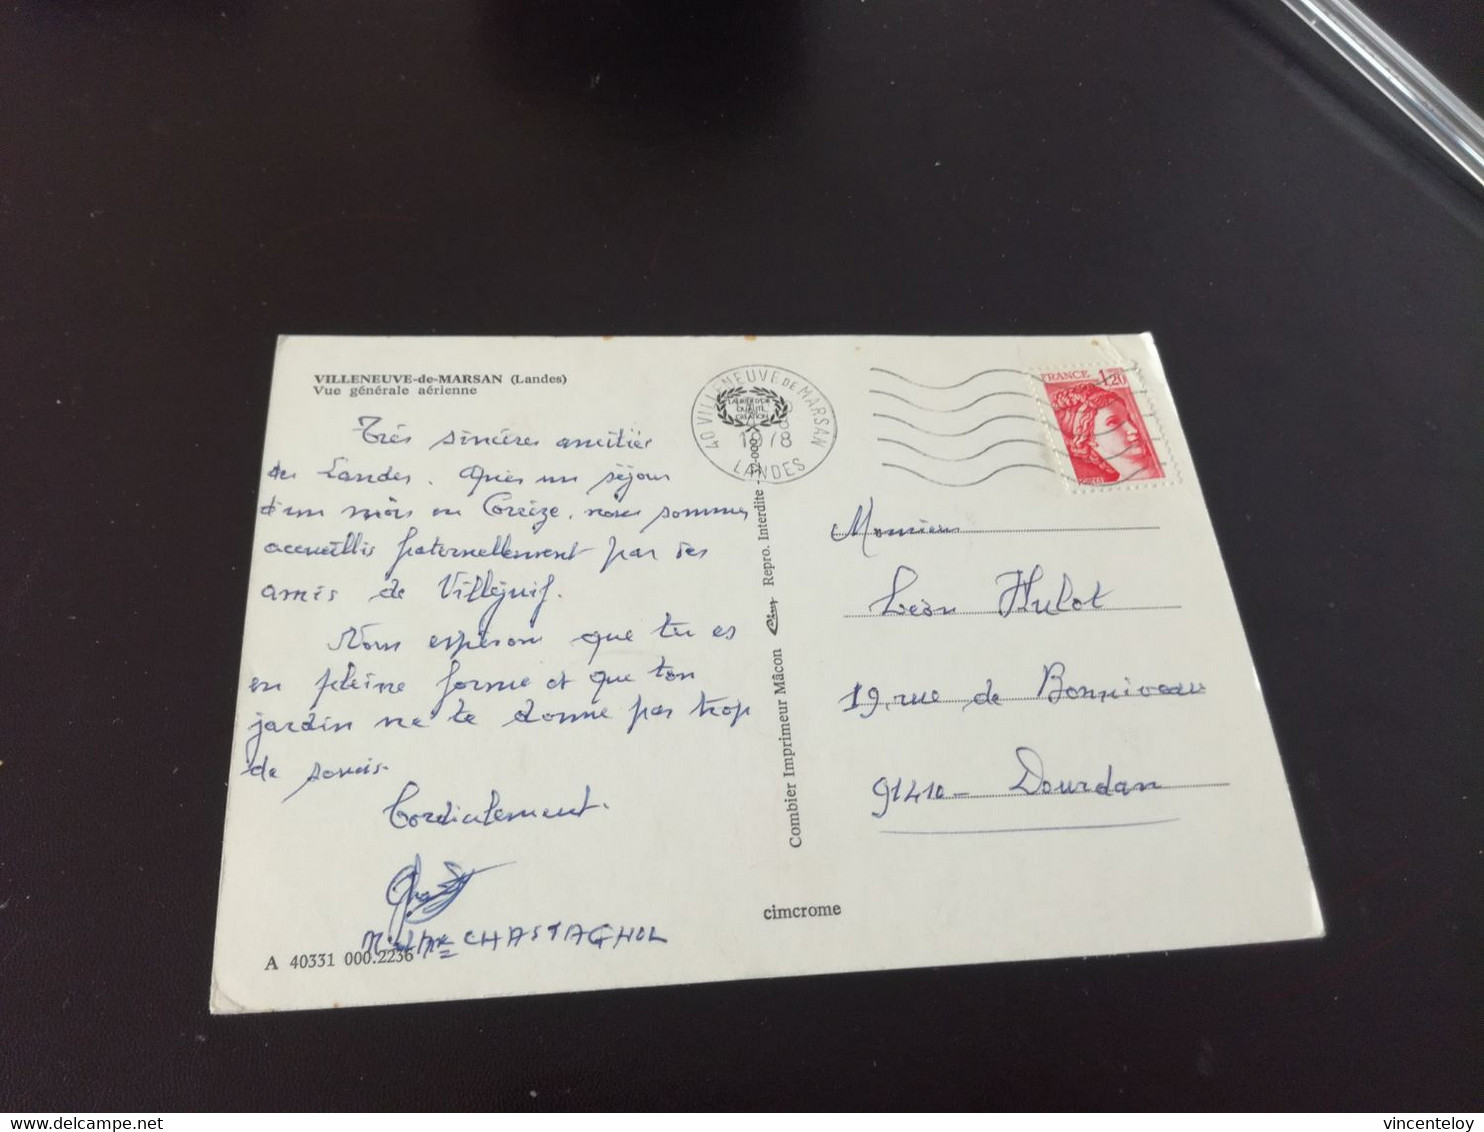 VILLENEUVE-de-MARSAN (Landes)
Vue générale aérienne
Très sincères amitiés
des Landes. Après un séjour
d'un mois en Corrèze, nous sommes
accueillis fraternellement par des
amis de Villejuif.
Nous espérons que tu es
en pleine forme et que ton
jardin ne te donne pas trop
de soucis.
Cordialement.
CHASTAGNOL
A 40331 000.2236
40 VILLENEUVE DE MARSAN
LANDES
Combier Imprimeur Mâcon Repro. Interdite - 32-000
cimcrome
FRANCE 1,20
Monsieur
Léon Hulot
19, rue de Bonniveau
91410 - Dourdan
delcampe.net
vincenteloy